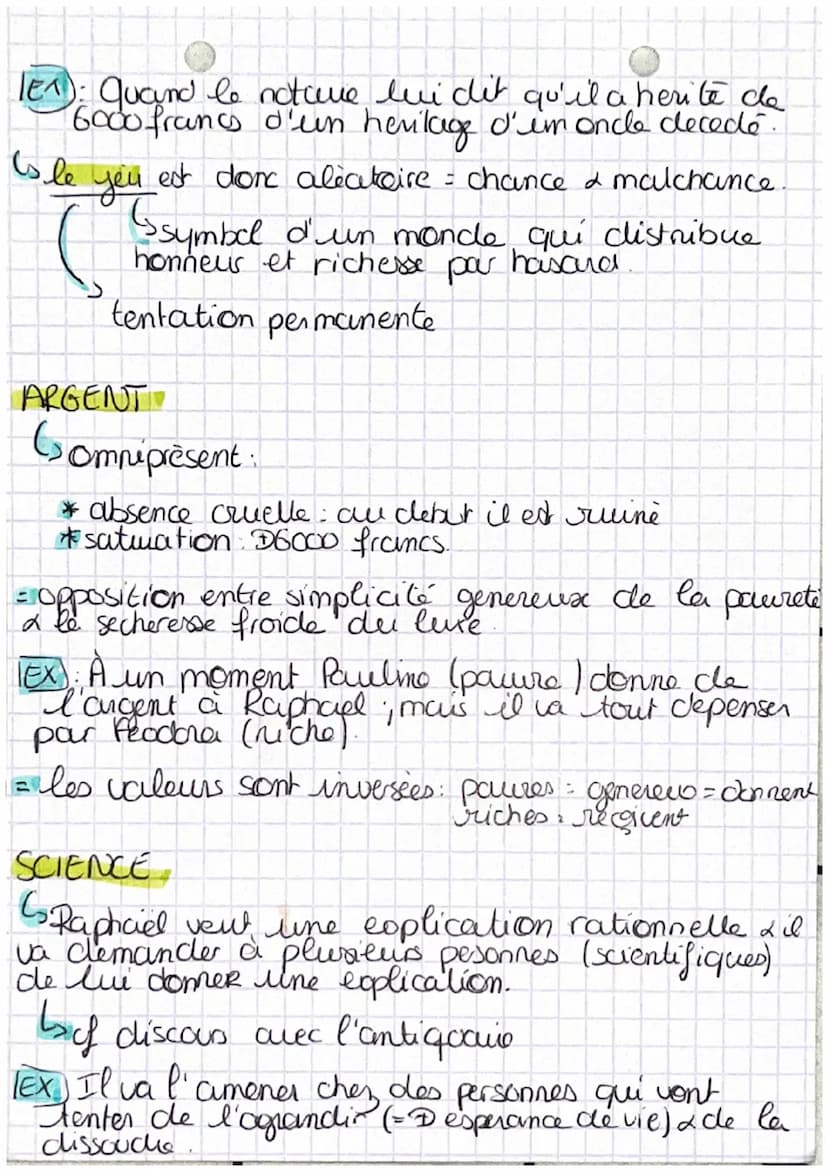 EX): Quand le notaire lui dit qu'il a herité de
6000 francs d'un heritage d'un oncle decedé.
↳ le yeu est donc aléatoire = chance & malchance.
↳ symbol d'un monde qui distribue
honneur et richesse par hasard.
tentation permanente
ARGENT
↳ omniprésent :
* absence cruelle : au debut il est ruiné
* saturation : 6000 francs.
= opposition entre simplicité genereuse de la pauvreté
& la secheresse froide du luxe.
EX): À un moment Pauline (pauvre) donne de
l'argent à Raphael ; mais il va tout depenser
par Féodora (riche).
= les valeurs sont inversées : pauvres = genereux = donnent
riches : reçoivent
SCIENCE
↳ Raphaël veut une explication rationnelle & il
va demander à plusieurs pesonnes (scientifiques)
de lui donner une explication.
↳ cf discours avec l'antiquaire
EX) Il va l'amener chez des personnes qui vont
tenter de l'agrandir (= esperance de vie) & de la
dissoudre.